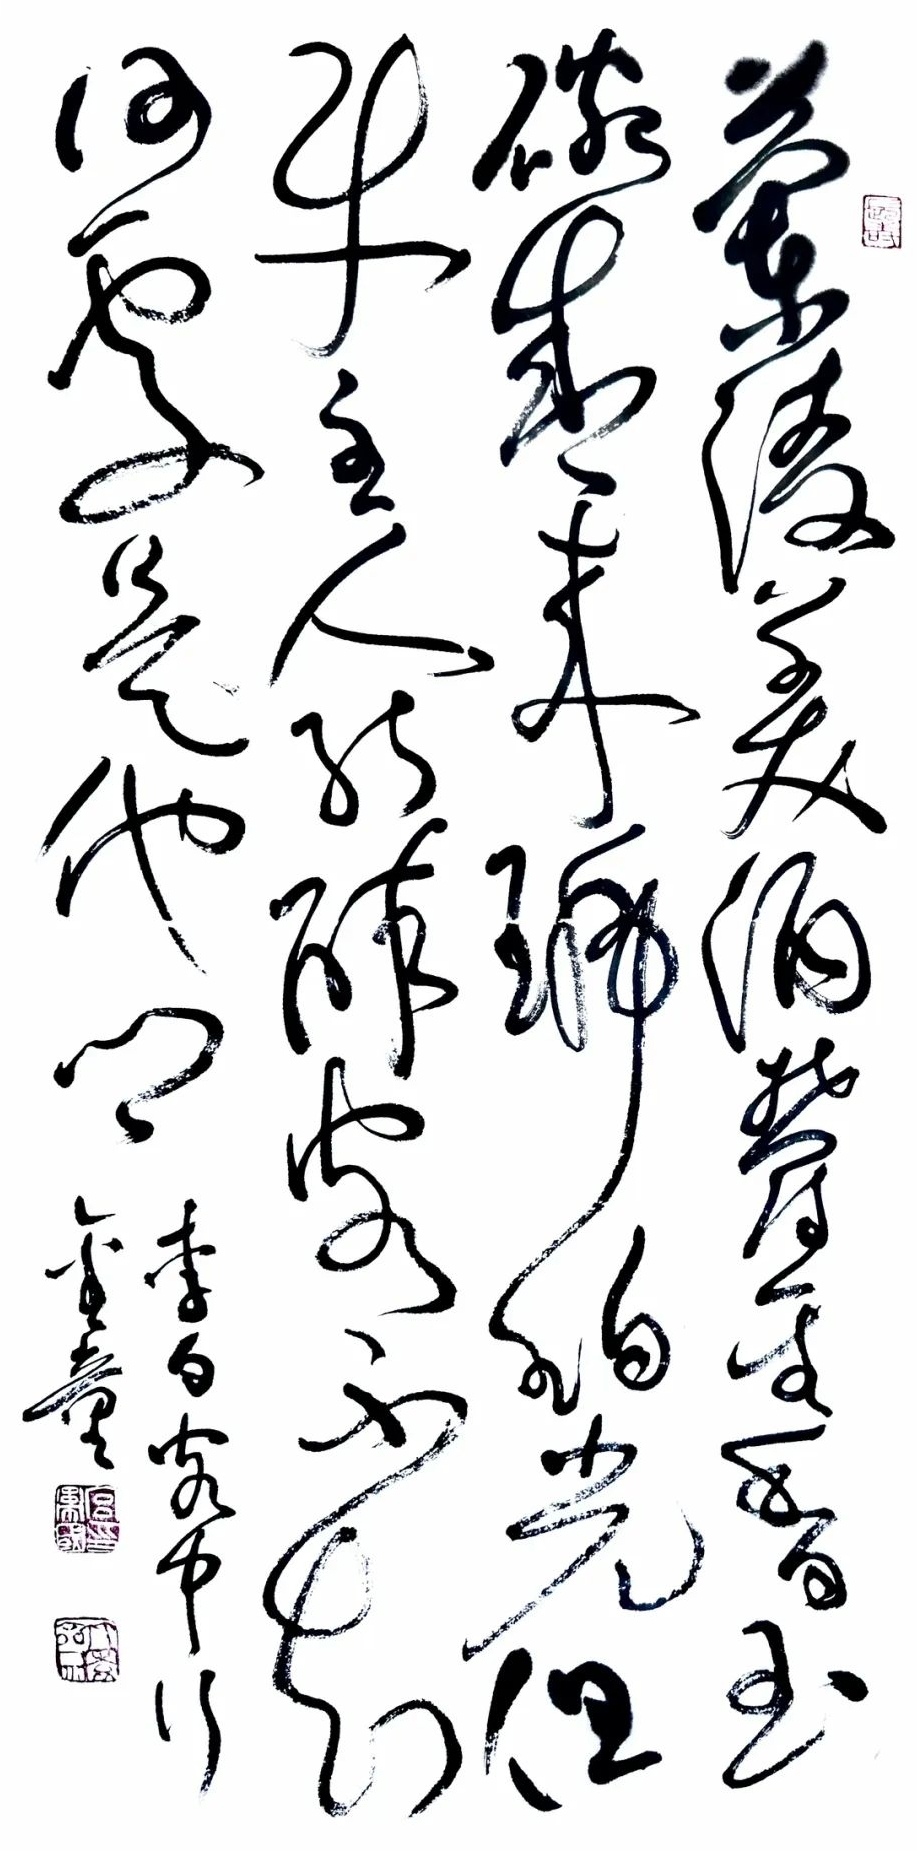 蘭陵美酒鬱金香玉
碗盛来琥珀光但
使主人能醉客不知
何處是他鄉
李白客中行